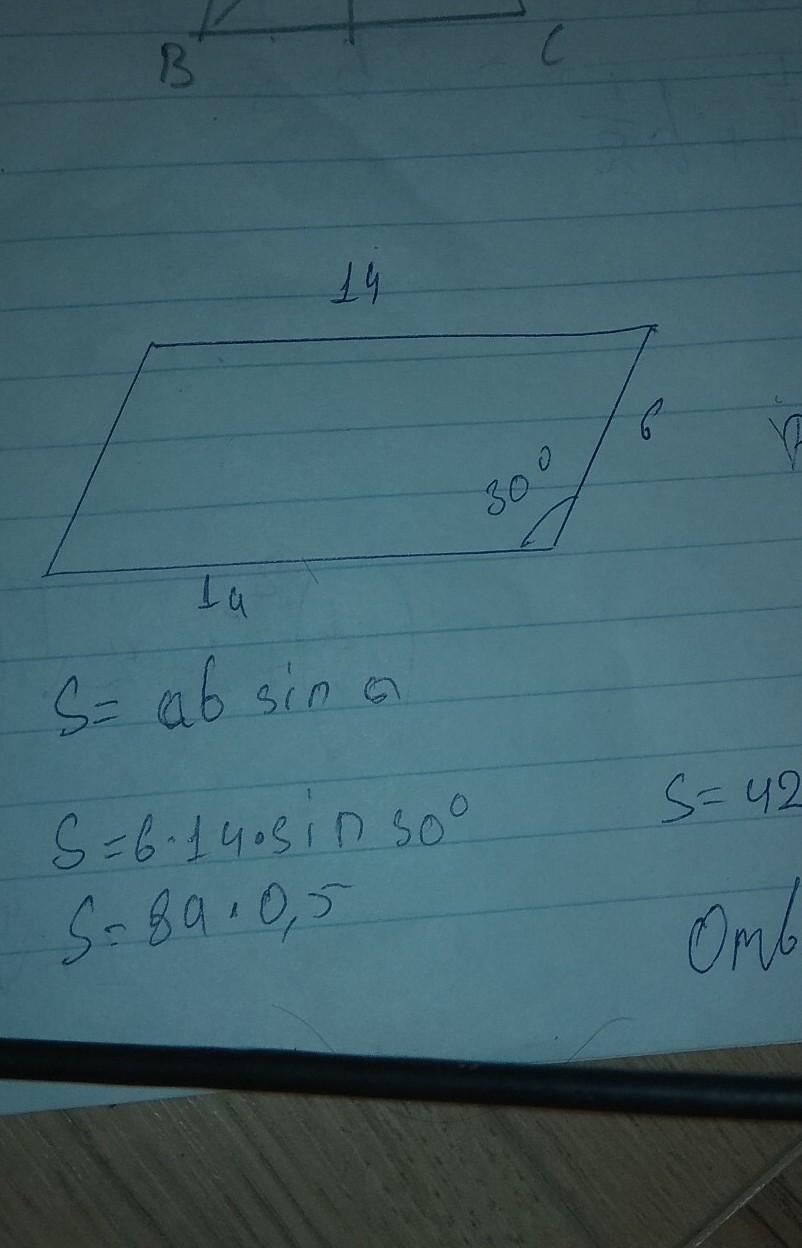 B C
14
6
30⁰
14
S= ab sin a
S=6·14·sin 30⁰
S=42
S= 84·0,5
Отв